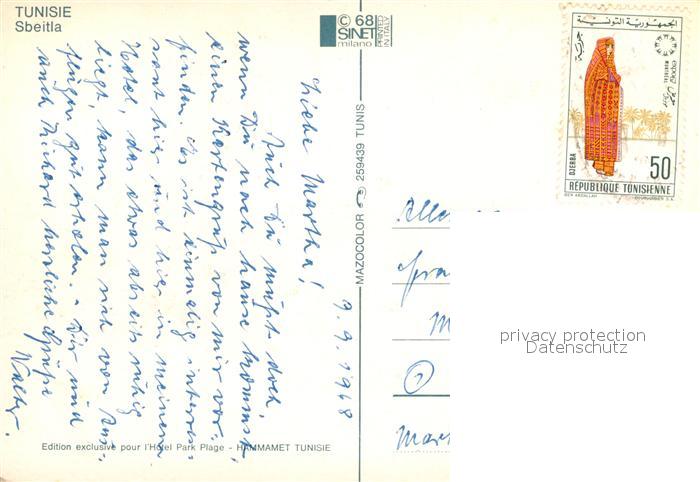 TUNISIE
Sbeitla
© 68
SINET
milano
PRINTED
IN ITALY
7.9.1968
Liebe Martha!
Auch Du mußt doch,
wenn Du nach hause kommst
einen Kartengruß von mir vor-
finden. Es ist einmalig interes-
sant hier und hier in meinem
Hotel, das etwas abseits ruhig
liegt, kann man sich von Aus-
flügen gut erholen. - Dir und
auch Richard herzliche Grüße
Walter.
Edition exclusive pour l'Hôtel Park Plage - HAMMAMET TUNISIE
MAZOCOLOR 259439 TUNIS
الجمهورية التونسية
جربة
MONTREAL
DJERBA
50
RÉPUBLIQUE TUNISIENNE
BEN ABDALLAH
privacy protection
Datenschutz